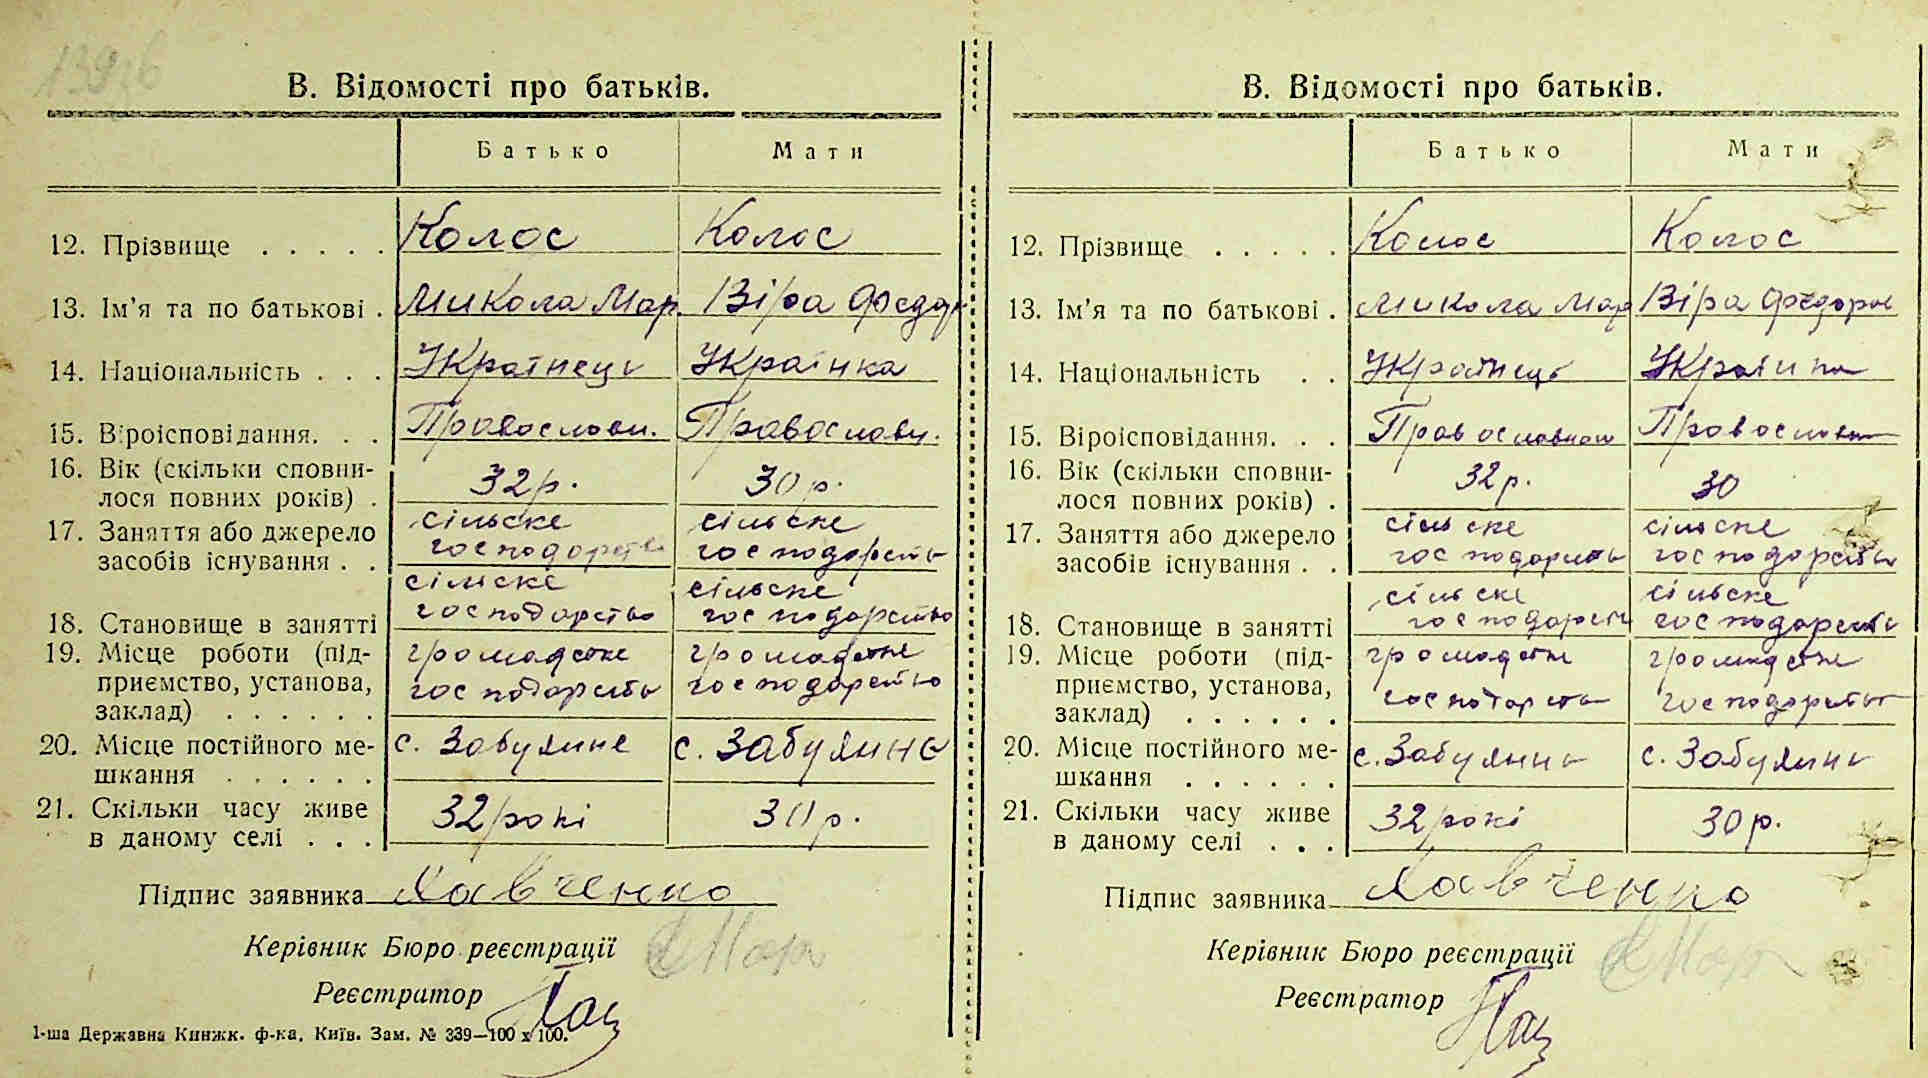 В. Відомості про батьків.
Батько Мати
12. Прізвище . . . . . Колос Колос
13. Ім'я та по батькові . Микола Мар. Віра Федор
14. Національність . . . Українець Українка
15. Віроісповідання. . . Православн. Православн.
16. Вік (скільки сповни-
лося повних років) . 32 р. 30 р.
17. Заняття або джерело сільске сільске
засобів існування . . господорство господарство
сільске сільске
18. Становище в занятті господорство господарство
19. Місце роботи (під- громадске громадске
приємство, установа, господорство господарство
заклад) . . . . . .
20. Місце постійного ме- с. Забуяння с. Забуяння
шкання . . . . . .
21. Скільки часу живе 32 рокі 30 р.
в даному селі . . .
Підпис заявника
Керівник Бюро реєстрації
Реєстратор
1-ша Державна Книжк. ф-ка, Київ. Зам. № 339—100 х 100.
В. Відомості про батьків.
Батько Мати
12. Прізвище . . . . . Колос Колос
13. Ім'я та по батькові . Микола Мар Віра Федоров
14. Національність . . Українець Українка
15. Віроісповідання. . . Православною Православн
16. Вік (скільки сповни-
лося повних років) . 32 р. 30
17. Заняття або джерело сільске сільске
засобів існування . . господарство господарство
сільске сільске
18. Становище в занятті господарств господарство
19. Місце роботи (під- громадске громадске
приємство, установа, господарство господарство
заклад) . . . . . .
20. Місце постійного ме- с. Забуяння с. Забуяння
шкання . . . . . .
21. Скільки часу живе 32 рокі 30 р.
в даному селі . . .
Підпис заявника
Керівник Бюро реєстрації
Реєстратор